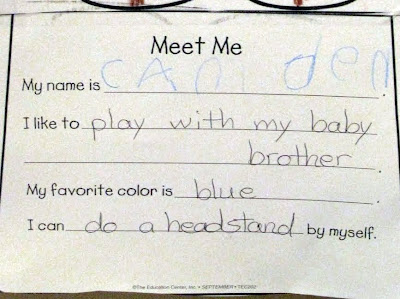 Meet Me
My name is camden.
I like to play with my baby
brother.
My favorite color is blue.
I can do a headstand by myself.
©The Education Center, Inc. • SEPTEMBER • TEC202